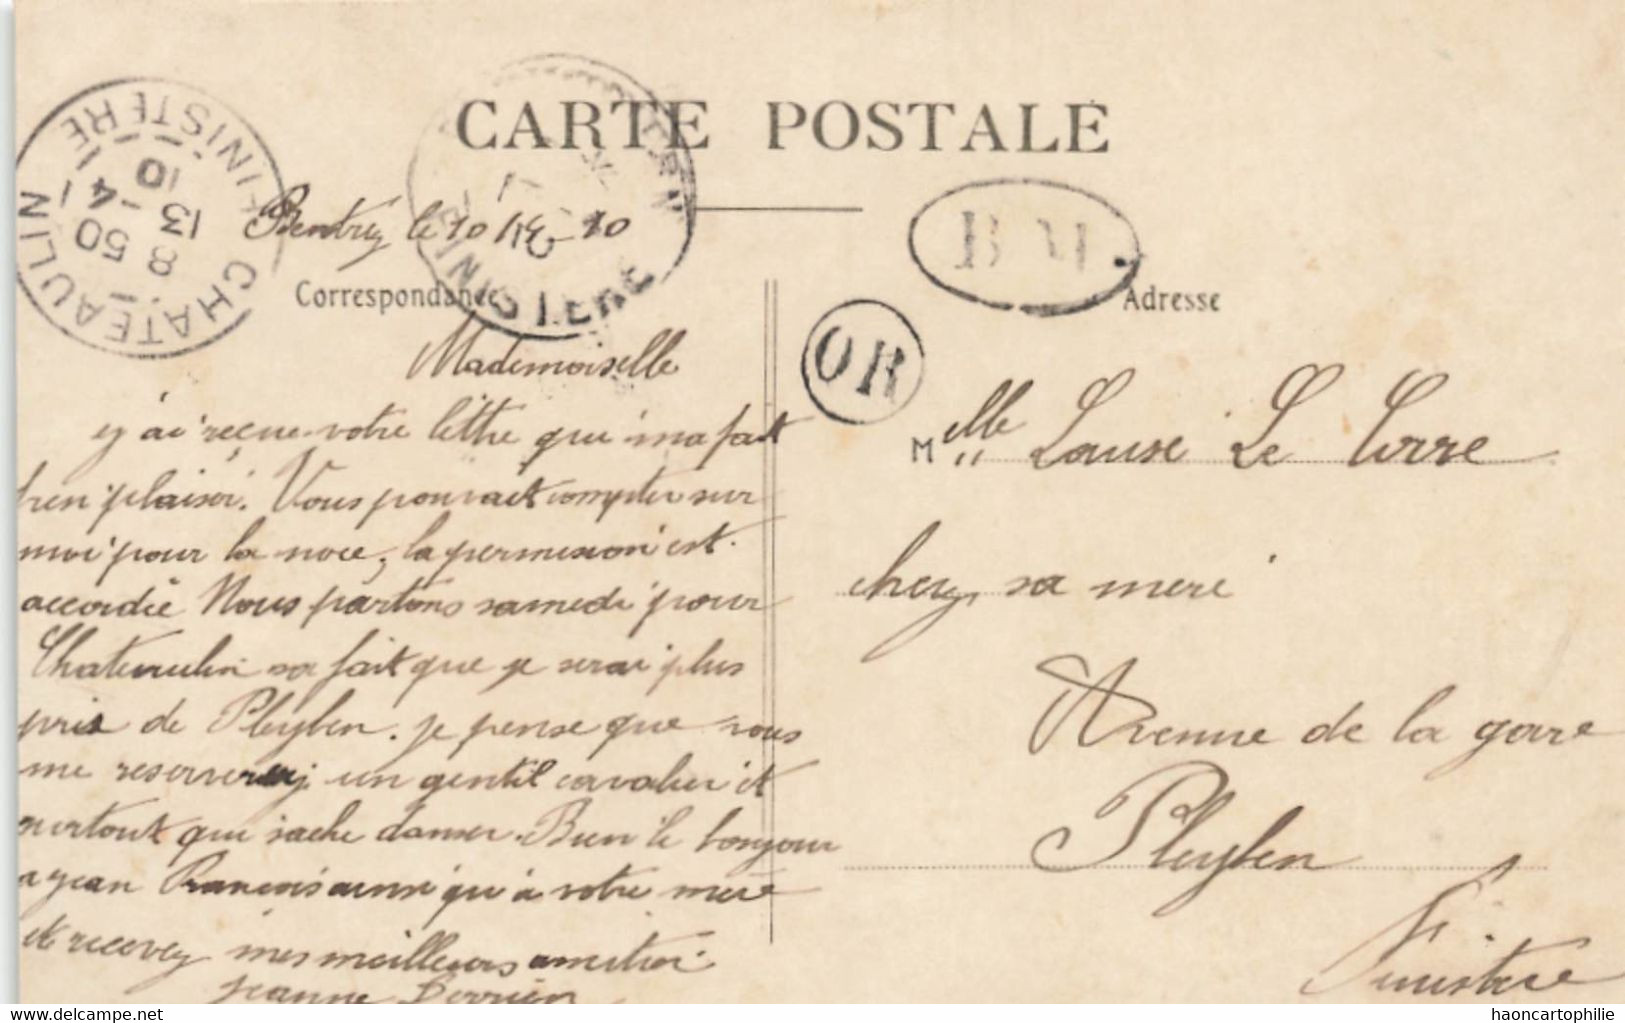 CARTE POSTALE
CHATEAULIN
FINISTERE
8 50
13 -4
10
FINISTERE
BM
OR
Correspondance
Adresse
le 10 10
Mademoiselle
j'ai reçue votre lettre qui ma fait
plaisir. Vous pouvait compter sur
moi pour la noce, la permission est
accordée Nous partons samedi pour
Chateaulin sa fait que je serai plus
pris de Pleyben. je pense que vous
me reserverez un gentil cavalier et
surtout qui sache danser. Bien le bonjour
a jean François ainsi qu'à votre mère
et recevez mes meilleurs amitiés
Jeanne Perrien
Melle Louise Le Corre
chez sa mere
Avenue de la gare
Pleyben
Finistere
www.delcampe.net
haoncartophilie